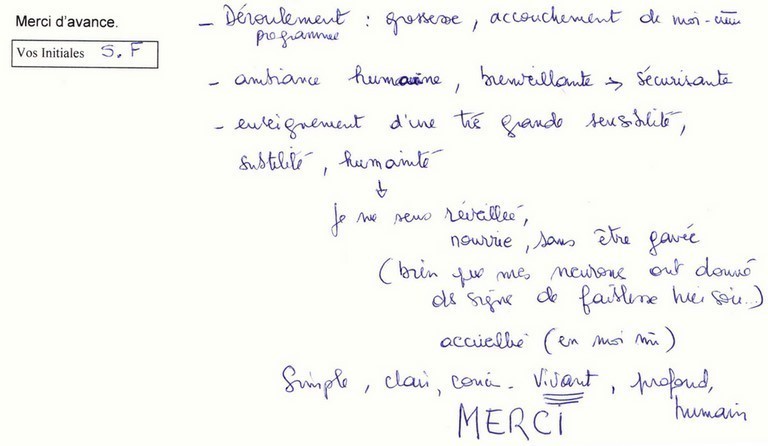 Merci d'avance.
Vos Initiales S.F
- Déroulement : grossesse, accouchement de moi-même
programme
- ambiance humaine, bienveillante → sécurisante
- enseignement d'une très grande sensibilité,
subtilité, humanité
↓
je me sens réveillée,
nourrie, sans être gavée
(bien que mes neurone ont donné
de signe de faiblesse hier soir...)
accueillie (en moi mê)
Simple, clair, concis. Vivant, profond,
humain
MERCI